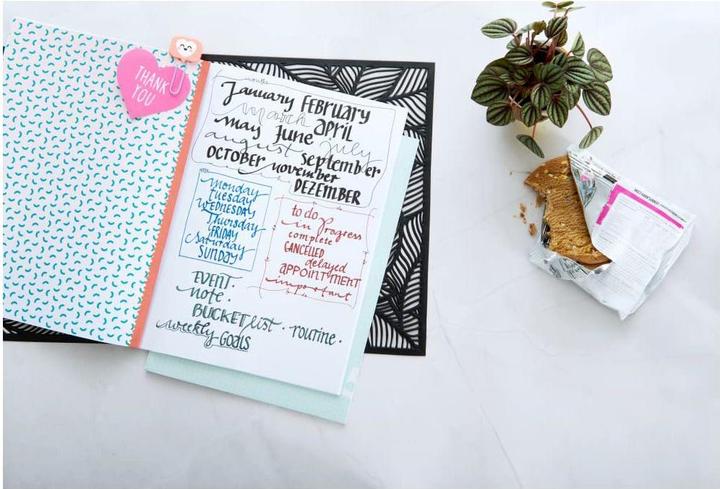 THANK
YOU
months
January FEBRUARY
march APRIL
may June july
august September
OCTOBER november
DEZEMBER
monday
TUESDAY
WEDNESDAY
Thursday
FRIDAY
Saturday
SUNDAY
to do
in Progress
complete
CANCELLED
delayed
APPOINTMENT
important
EVENT.
note.
BUCKET list. routine.
weekly GOALS